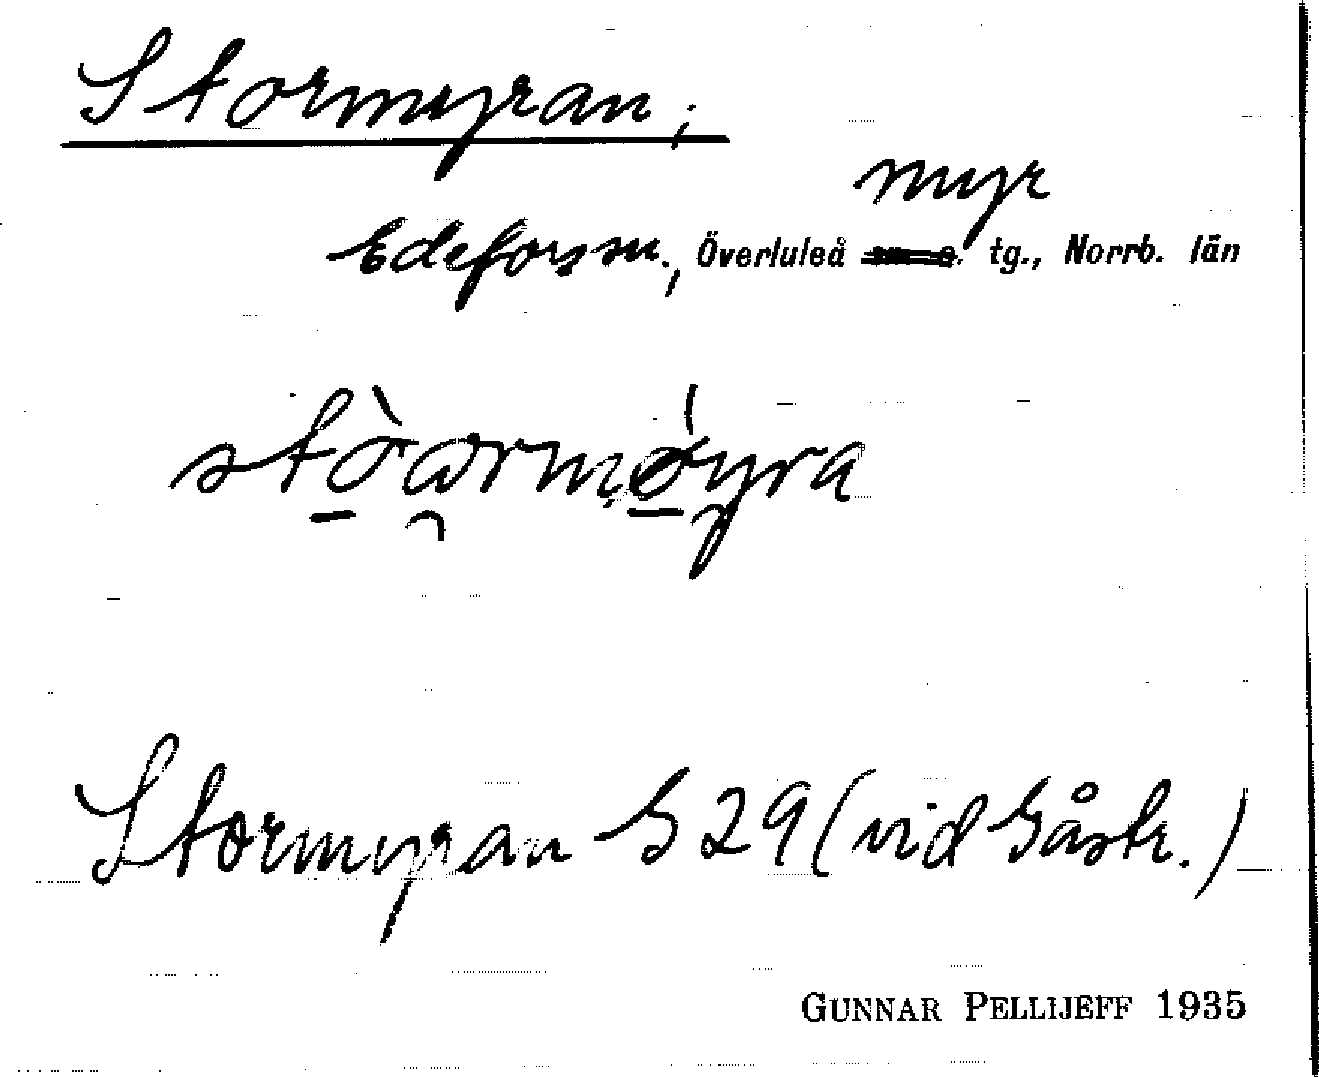 Stormyran;
myr
Edeforssn., Överluleå tg., Norrb. län
stò̠a̯rmǿ̠yra
Stormyran G 29 (vid Gåstr.)
GUNNAR PELLIJEFF 1935